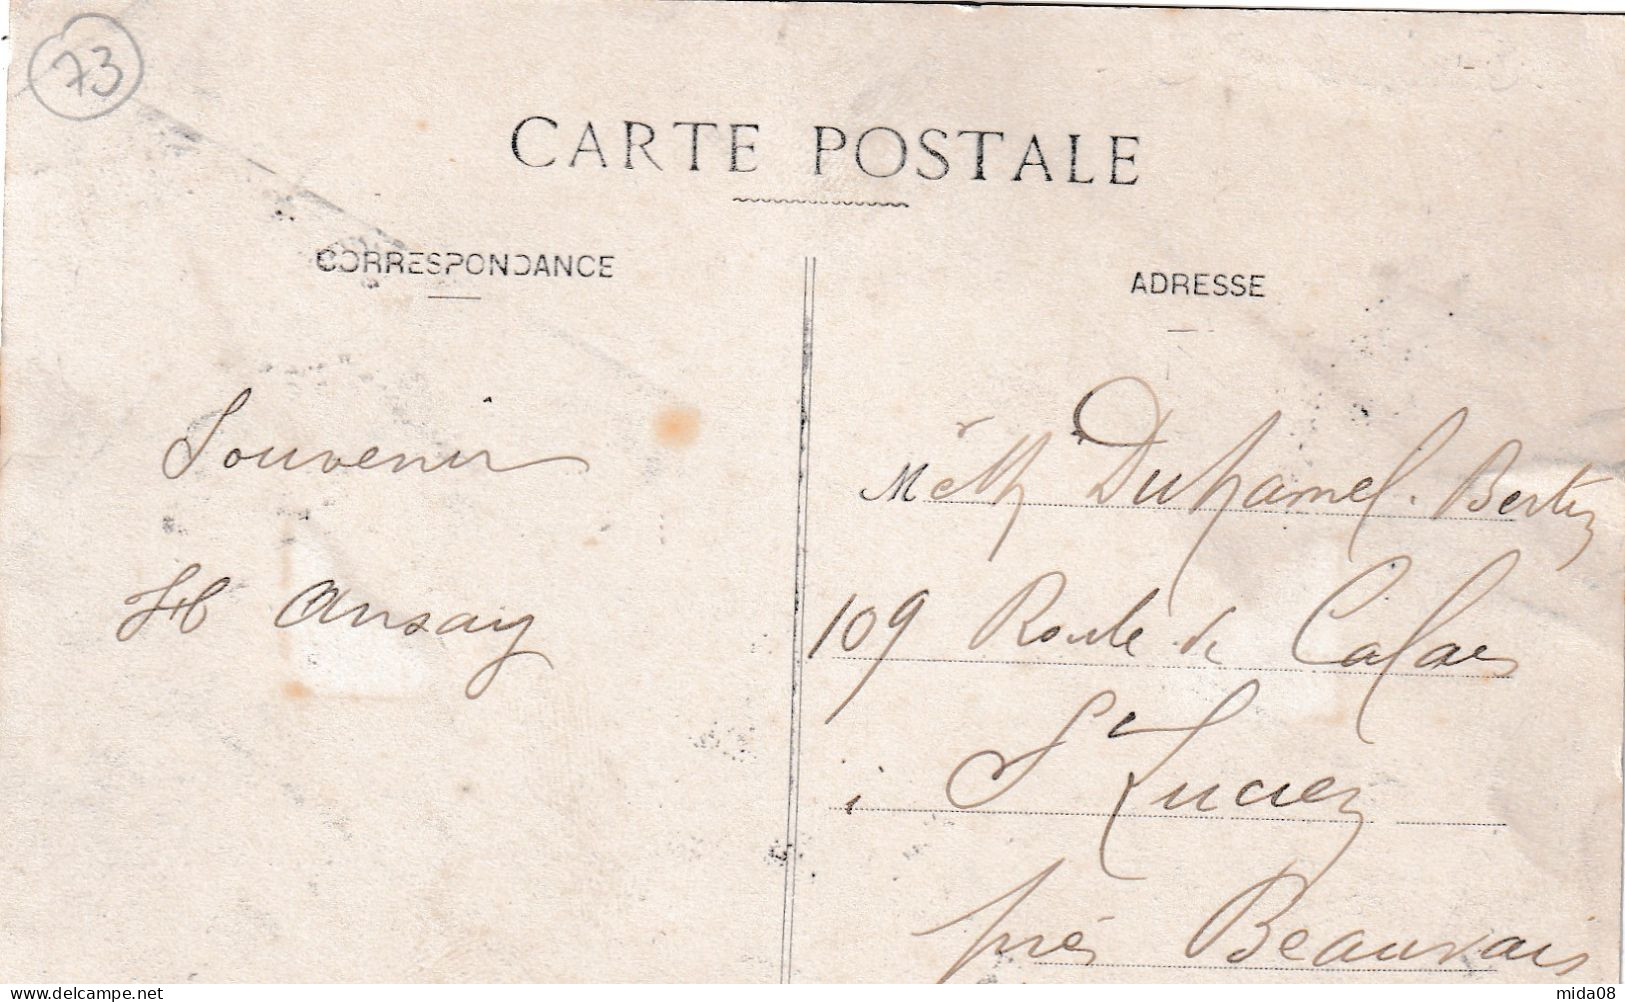 73
CARTE POSTALE
CORRESPONDANCE
ADRESSE
Souvenir
Ansay
M Duhamel. Bertin
109 Route de Calais
St Lucien
près Beauvais
mida08